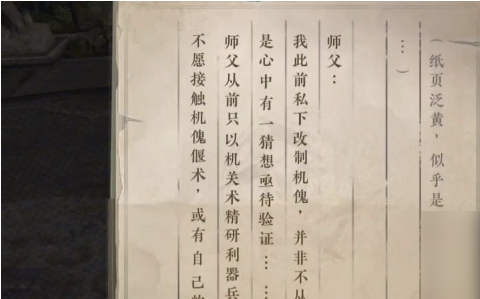 （纸页泛黄，似乎是
…）
师父：
我此前私下改制机傀，并非不从
是心中有一猜想亟待验证……
师父从前只以机关术精研利器兵
不愿接触机傀偃术，或有自己